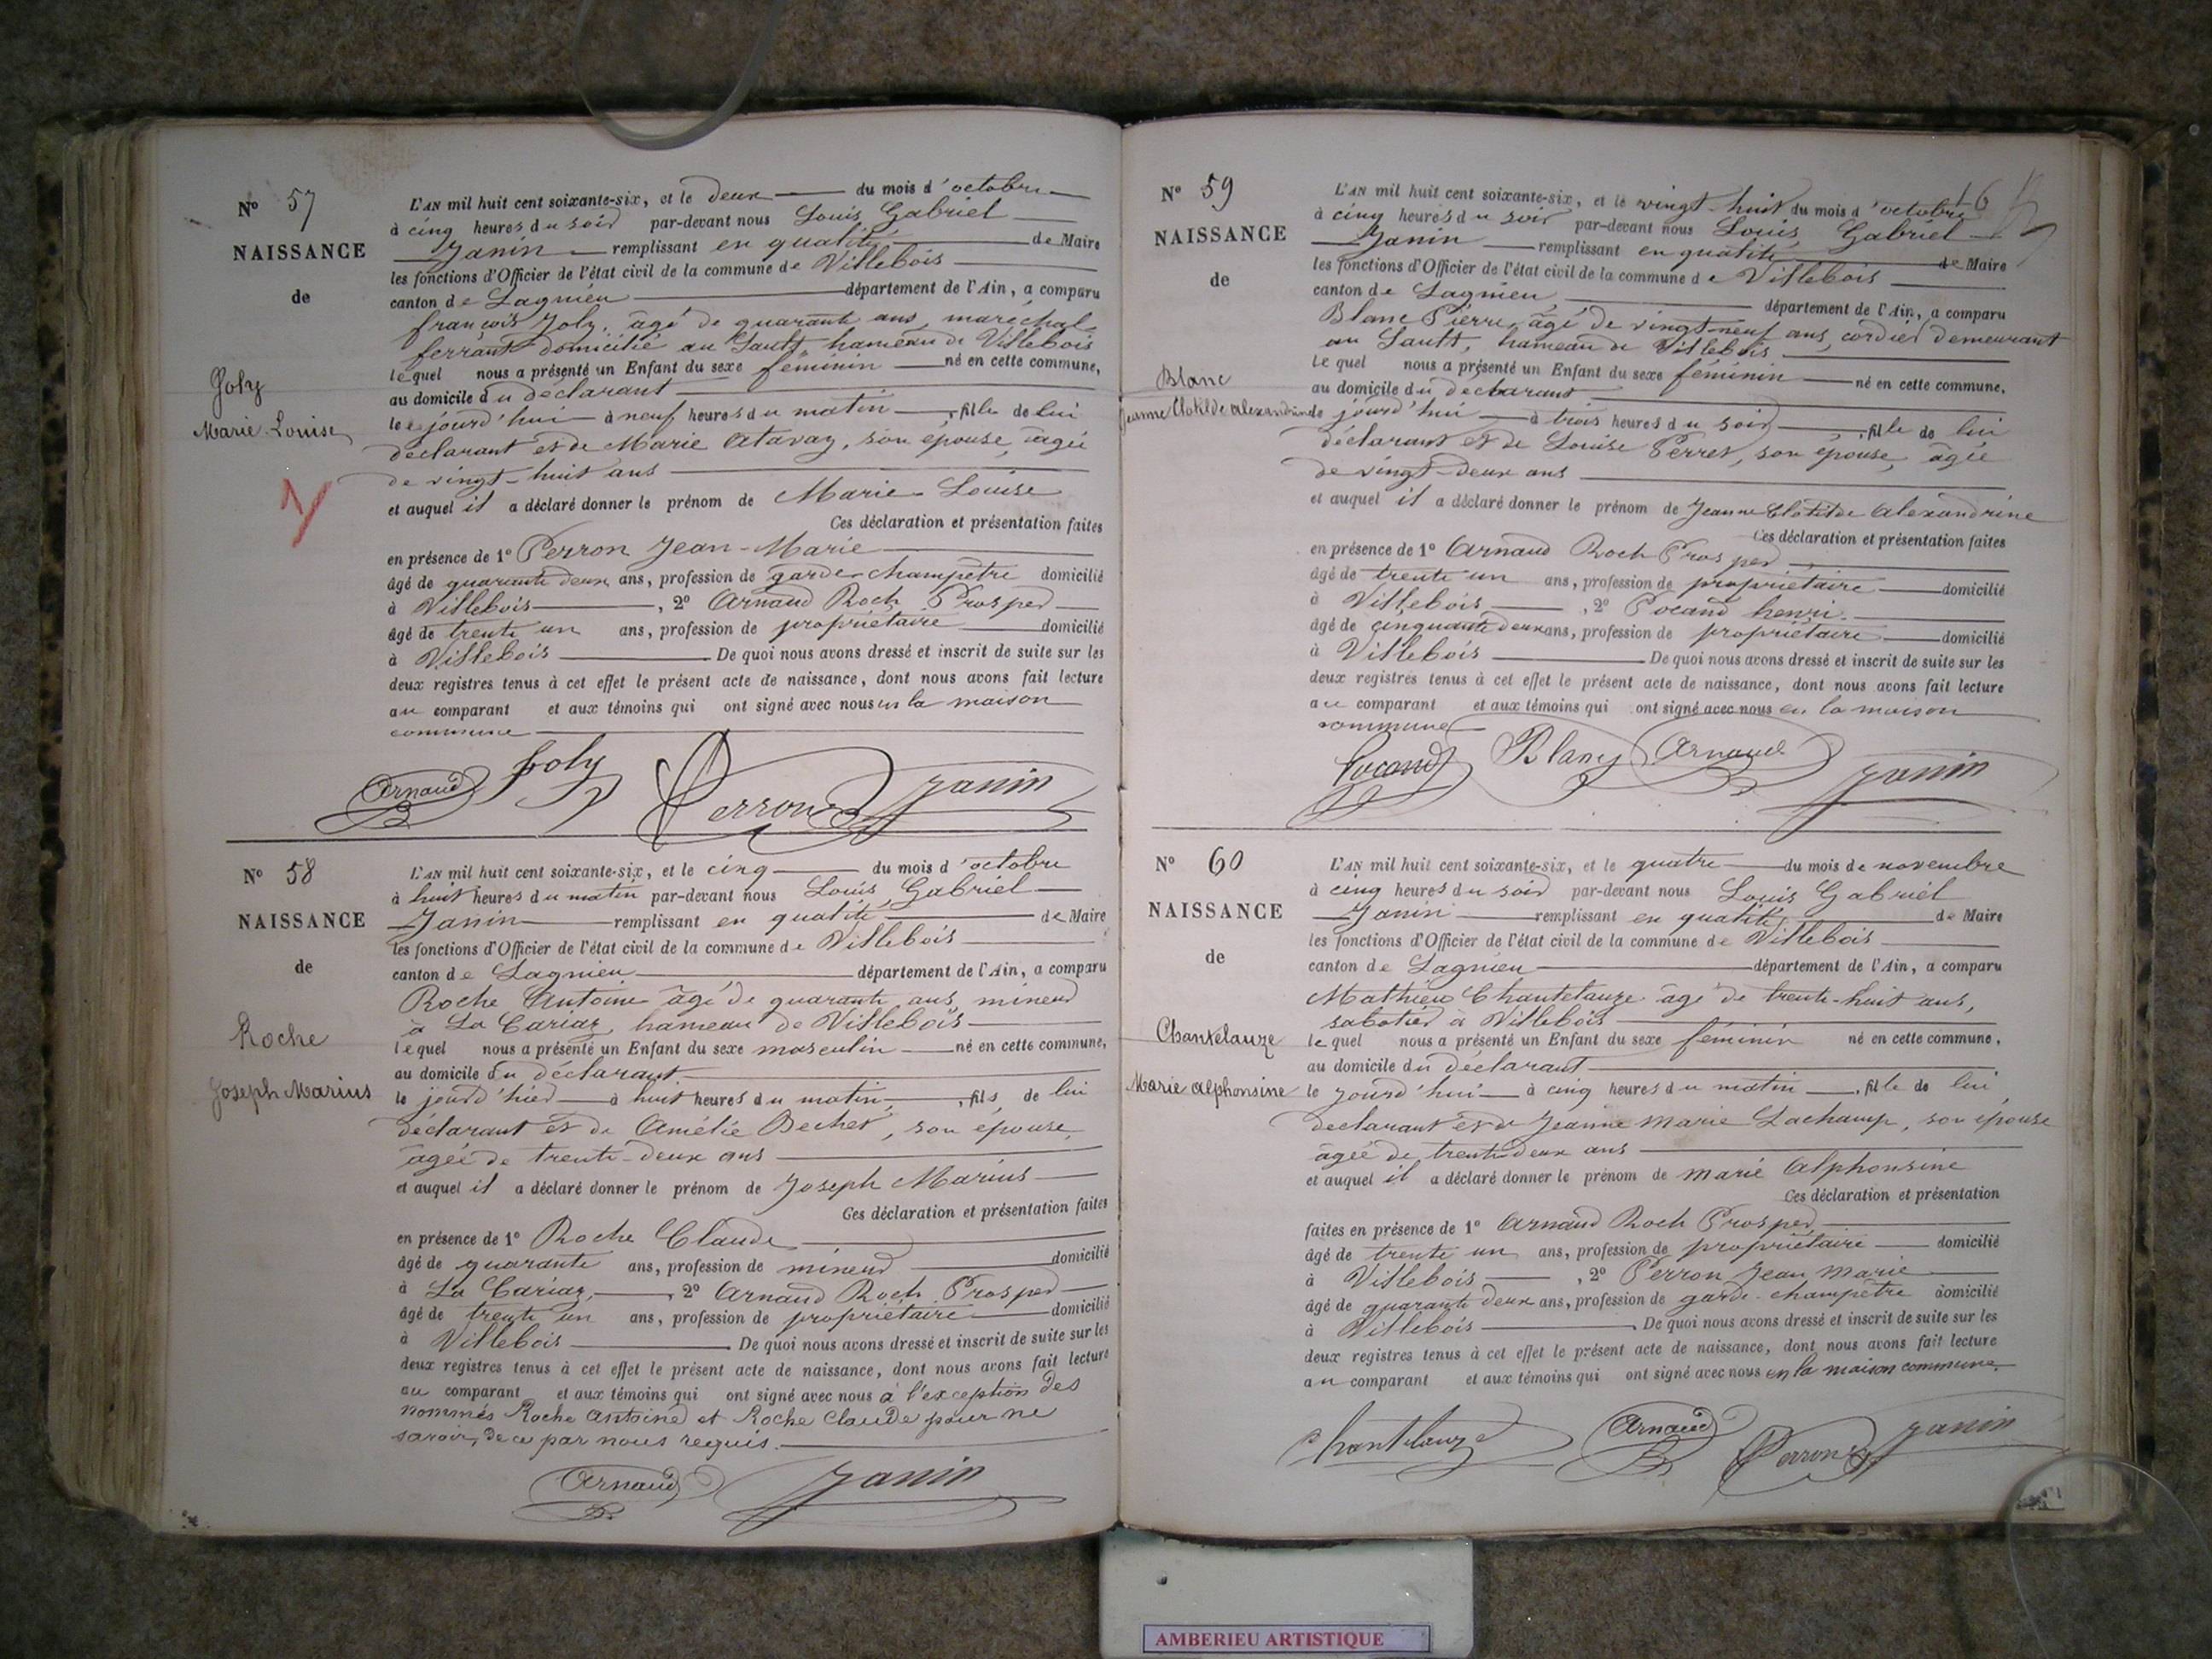 N° 57
NAISSANCE
de
Joly
Marie-Louise
L'AN mil huit cent soixante-six, et le deux du mois d'octobre
à cinq heures du soir par-devant nous Louis Gabriel
Janin remplissant en qualité de Maire
les fonctions d'Officier de l'état civil de la commune de Villebois
canton de Lagnieu département de l'Ain, a comparu
françois Joly, âgé de quarante ans, maréchal-
ferrant domicilié au Sault, hameau de Villebois
lequel nous a présenté un Enfant du sexe féminin né en cette commune,
au domicile du déclarant
le jourd'hui à neuf heures du matin, fille de lui
déclarant et de Marie Atavay, son épouse, âgée
de vingt-huit ans
et auquel il a déclaré donner le prénom de Marie-Louise
Ces déclaration et présentation faites
en présence de 1° Perron Jean-Marie
âgé de quarante deux ans, profession de garde-champêtre domicilié
à Villebois, 2° Arnaud Roch Prosper
âgé de trente un ans, profession de propriétaire domicilié
à Villebois De quoi nous avons dressé et inscrit de suite sur les
deux registres tenus à cet effet le présent acte de naissance, dont nous avons fait lecture
au comparant et aux témoins qui ont signé avec nous en la maison
commune
Arnaud Joly Perron Janin
N° 58
NAISSANCE
de
Roche
Joseph Marius
L'AN mil huit cent soixante-six, et le cinq du mois d'octobre
à huit heures du matin par-devant nous Louis Gabriel
Janin remplissant en qualité de Maire
les fonctions d'Officier de l'état civil de la commune de Villebois
canton de Lagnieu département de l'Ain, a comparu
Roche Antoine âgé de quarante ans, mineur
à La Cariaz, hameau de Villebois
lequel nous a présenté un Enfant du sexe masculin né en cette commune,
au domicile du déclarant
le jourd'hier à huit heures du matin, fils de lui
déclarant et de Amélie Bechet, son épouse,
âgée de trente-deux ans
et auquel il a déclaré donner le prénom de Joseph Marius
Ces déclaration et présentation faites
en présence de 1° Roche Claude
âgé de quarante ans, profession de mineur domicilié
à La Cariaz, 2° Arnaud Roch Prosper
âgé de trente un ans, profession de propriétaire domicilié
à Villebois De quoi nous avons dressé et inscrit de suite sur les
deux registres tenus à cet effet le présent acte de naissance, dont nous avons fait lecture
au comparant et aux témoins qui ont signé avec nous à l'exception des
nommés Roche Antoine et Roche Claude pour ne
savoir, de ce par nous requis.
Arnaud Janin
N° 59
NAISSANCE
de
Blanc
Jeanne Clotilde Alexandrine
L'AN mil huit cent soixante-six, et le vingt-huit du mois d'octobre
à cinq heures du soir par-devant nous Louis Gabriel
Janin remplissant en qualité de Maire
les fonctions d'Officier de l'état civil de la commune de Villebois
canton de Lagnieu département de l'Ain, a comparu
Blanc Pierre, âgé de vingt-neuf ans, cordier demeurant
au Sault, hameau de Villebois
lequel nous a présenté un Enfant du sexe féminin né en cette commune,
au domicile du déclarant
le jourd'hui à trois heures du soir, fille de lui
déclarant et de Louise Perret, son épouse, âgée
de vingt-deux ans
et auquel il a déclaré donner le prénom de Jeanne Clotilde Alexandrine
Ces déclaration et présentation faites
en présence de 1° Arnaud Roch Prosper
âgé de trente un ans, profession de propriétaire domicilié
à Villebois, 2° Pocand henri
âgé de cinquante deux ans, profession de propriétaire domicilié
à Villebois De quoi nous avons dressé et inscrit de suite sur les
deux registres tenus à cet effet le présent acte de naissance, dont nous avons fait lecture
au comparant et aux témoins qui ont signé avec nous en la maison
commune
Pocand Blanc Arnaud Janin
N° 60
NAISSANCE
de
Chantelauze
Marie Alphonsine
L'AN mil huit cent soixante-six, et le quatre du mois de novembre
à cinq heures du soir par-devant nous Louis Gabriel
Janin remplissant en qualité de Maire
les fonctions d'Officier de l'état civil de la commune de Villebois
canton de Lagnieu département de l'Ain, a comparu
Mathieu Chantelauze âgé de trente-huit ans,
sabotier à Villebois
lequel nous a présenté un Enfant du sexe féminin né en cette commune,
au domicile du déclarant
le jourd'hui à cinq heures du matin, fille de lui
déclarant et de Jeanne Marie Lachamp, son épouse
âgée de trente-deux ans
et auquel il a déclaré donner le prénom de Marie Alphonsine
Ces déclaration et présentation
faites en présence de 1° Arnaud Roch Prosper
âgé de trente un ans, profession de propriétaire domicilié
à Villebois, 2° Perron Jean Marie
âgé de quarante deux ans, profession de garde-champêtre domicilié
à Villebois De quoi nous avons dressé et inscrit de suite sur les
deux registres tenus à cet effet le présent acte de naissance, dont nous avons fait lecture
au comparant et aux témoins qui ont signé avec nous en la maison commune.
Chantelauze Arnaud Perron Janin
AMBERIEU ARTISTIQUE